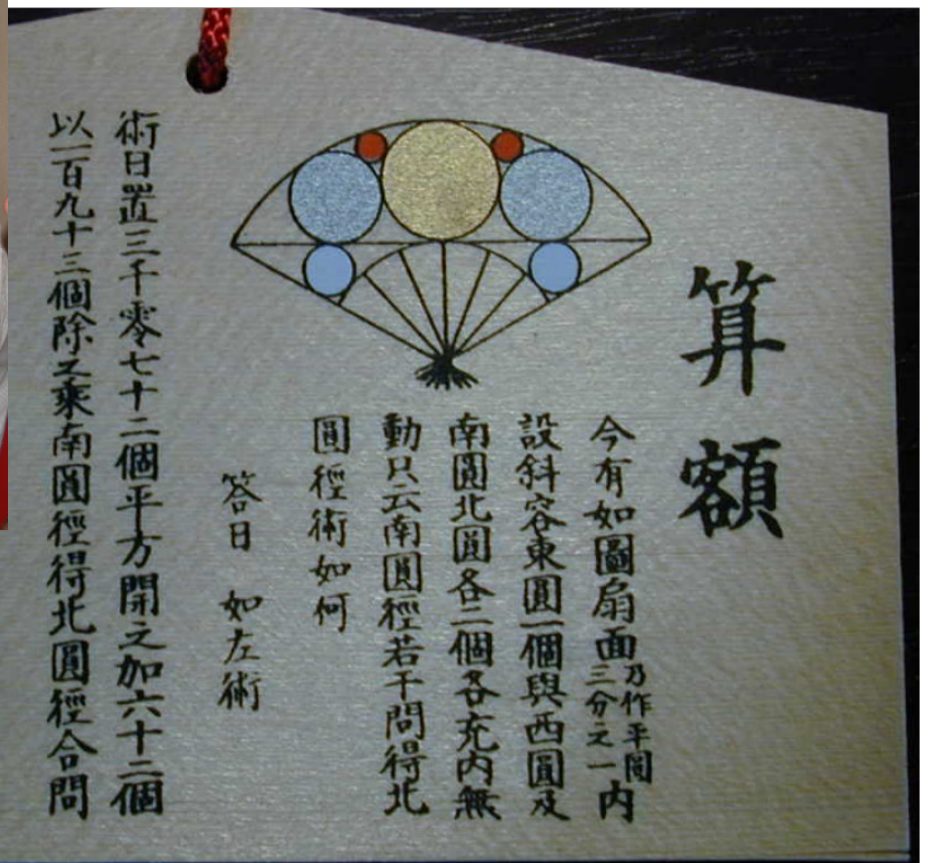 算額
今有如圖扇面乃作平圓三分之一内
設斜容東圓一個與西圓及
南圓北圓各二個各充内無
動只云南圓徑若干問得北
圓徑術如何
答曰 如左術
術曰置三千零七十二個平方開之加六十二個
以一百九十三個除之乘南圓徑得北圓徑合問